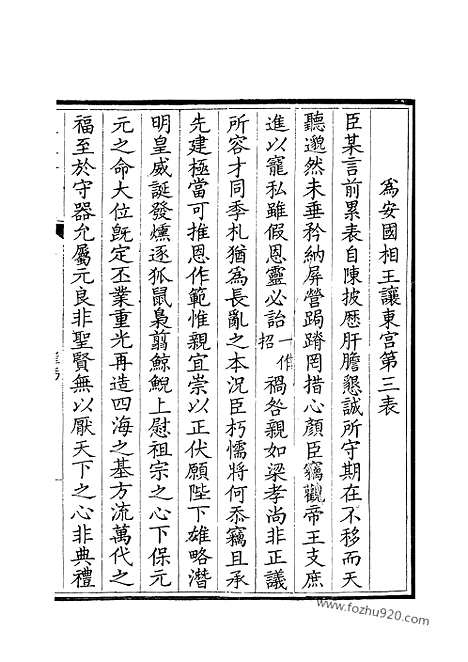 為安國相王讓東宮第三表
臣某言前累表自陳披歷肝膽懇誠所守期在不移而天
聽邈然未垂矜納屏營跼蹐罔措心顏臣竊觀帝王支庶
進以寵私雖假恩靈必詒一作招禍咎親如梁孝尚非正議
所容才同季札猶為長亂之本況臣朽懦將何忝竊且承
先建極當可推恩作範惟親宜崇以正伏願陛下雄略潛
明皇威誕發燻逐狐鼠梟翦鯨鯢上慰祖宗之心下保元
元之命大位旣定丕業重光再造四海之基方流萬代之
福至於守器允屬元良非聖賢無以厭天下之心非典禮
www.fozhu920.com